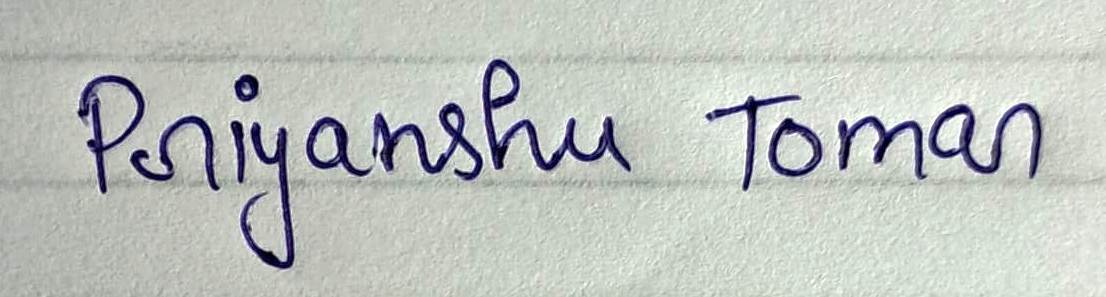 Priyanshu Tomar